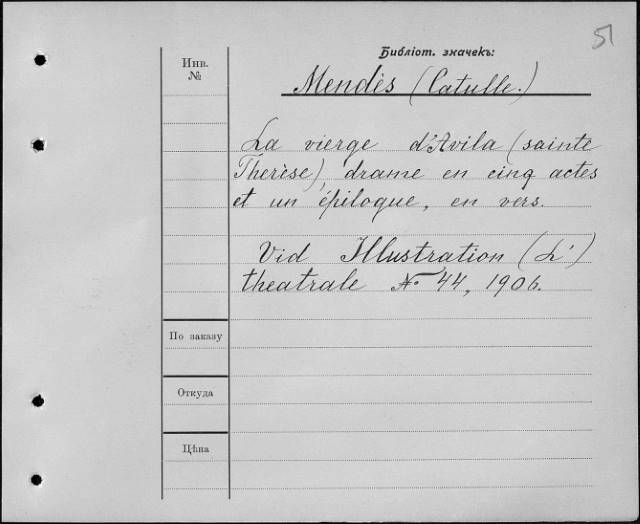 51
Библіот. значекъ:
Инв.
№
Mendès (Catulle.)
La vierge d'Avila (sainte
Therèse), drame en cinq actes
et un épilogue, en vers.
Vid Illustration (L')
theatrale № 44, 1906.
По заказу
Откуда
Цѣна